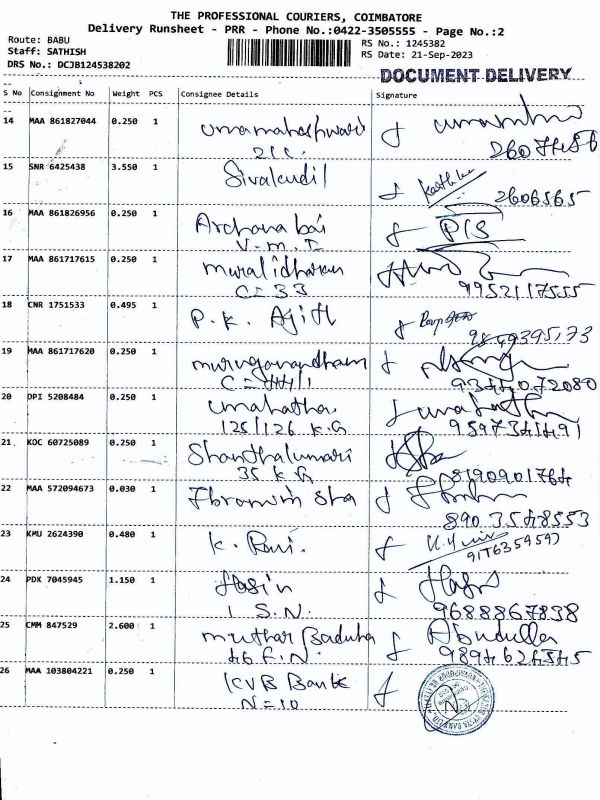 THE PROFESSIONAL COURIERS, COIMBATORE
Delivery Runsheet - PRR - Phone No.:0422-3505555 - Page No.:2
Route: BABU
Staff: SATHISH
DRS No.: DCJB124538202
RS No.: 1245382
RS Date: 21-Sep-2023
DOCUMENT DELIVERY
S No Consignment No Weight PCS Consignee Details Signature
14 MAA 861827044 0.250 1 umamaheshwari
21C.
2607456
15 SNR 6425438 3.550 1 Sivakudil
2606565
16 MAA 861826956 0.250 1 Archana bai
V.M.I
17 MAA 861717615 0.250 1 muralidharan
C=33
9952117555
18 CNR 1751533 0.495 1 P.K. Ajith
19 MAA 861717620 0.250 1 muruganandham
C=44/1
9344072080
20 DPI 5208484 0.250 1 umahatha.
125/126 K.G
9597341491
21 KOC 60725089 0.250 1 Shanthakumari
35 K.G
8190901764
22 MAA 572094673 0.030 1
8903548553
23 KMU 2624390 0.480 1 K. Ravi.
24 PDX 7045945 1.150 1 Hasin
1 S.N.
9688867838
25 CMM 847529 2.600 1 muthar Baduha
46 F.N. Abudulla
9894624545
26 MAA 103804221 0.250 1 KVB Bank
N=10